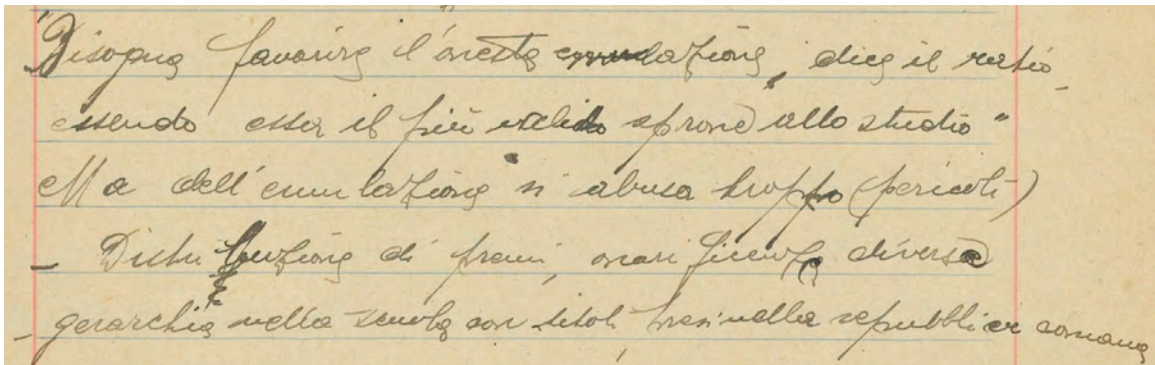 "Bisogna favorire l'onesta emulazione, dice il ratio
essendo essa il più valido sprone allo studio"
Ma dell'emulazione si abusa troppo (pericoli)
- Distribuzione di premi, onorificenze diverse
- gerarchia nella scuola con titoli presi nella repubblica romana